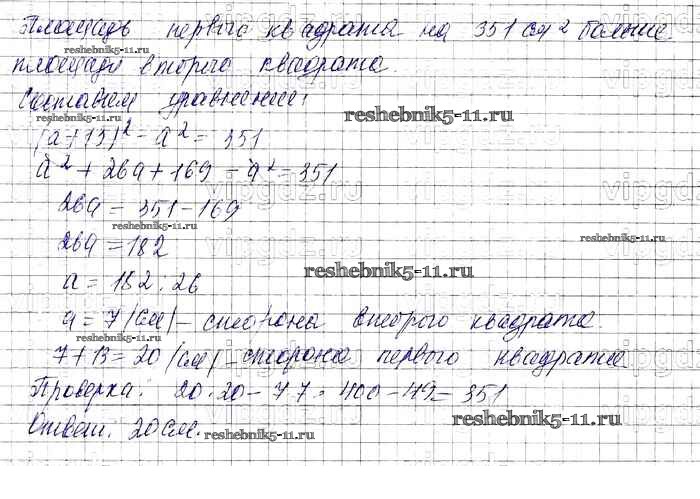 Площадь первого квадрата на 351 см² больше
reshebnik5-11.ru
площади второго квадрата.
Составим уравнение:
reshebnik5-11.ru
(a+13)² - a² = 351
a² + 26a + 169 - a² = 351
vipgdz.ru
26a = 351 - 169
reshebnik5-11.ru
reshebnik5-11.ru
26a = 182
reshebnik5-11.ru
a = 182 : 26
a = 7 (см) - сторона второго квадрата.
reshebnik5-11.ru
7 + 13 = 20 (см) - сторона первого квадрата
Проверка: 20·20 - 7·7 = 400 - 49 = 351
reshebnik5-11.ru
Ответ: 20 см.
reshebnik5-11.ru